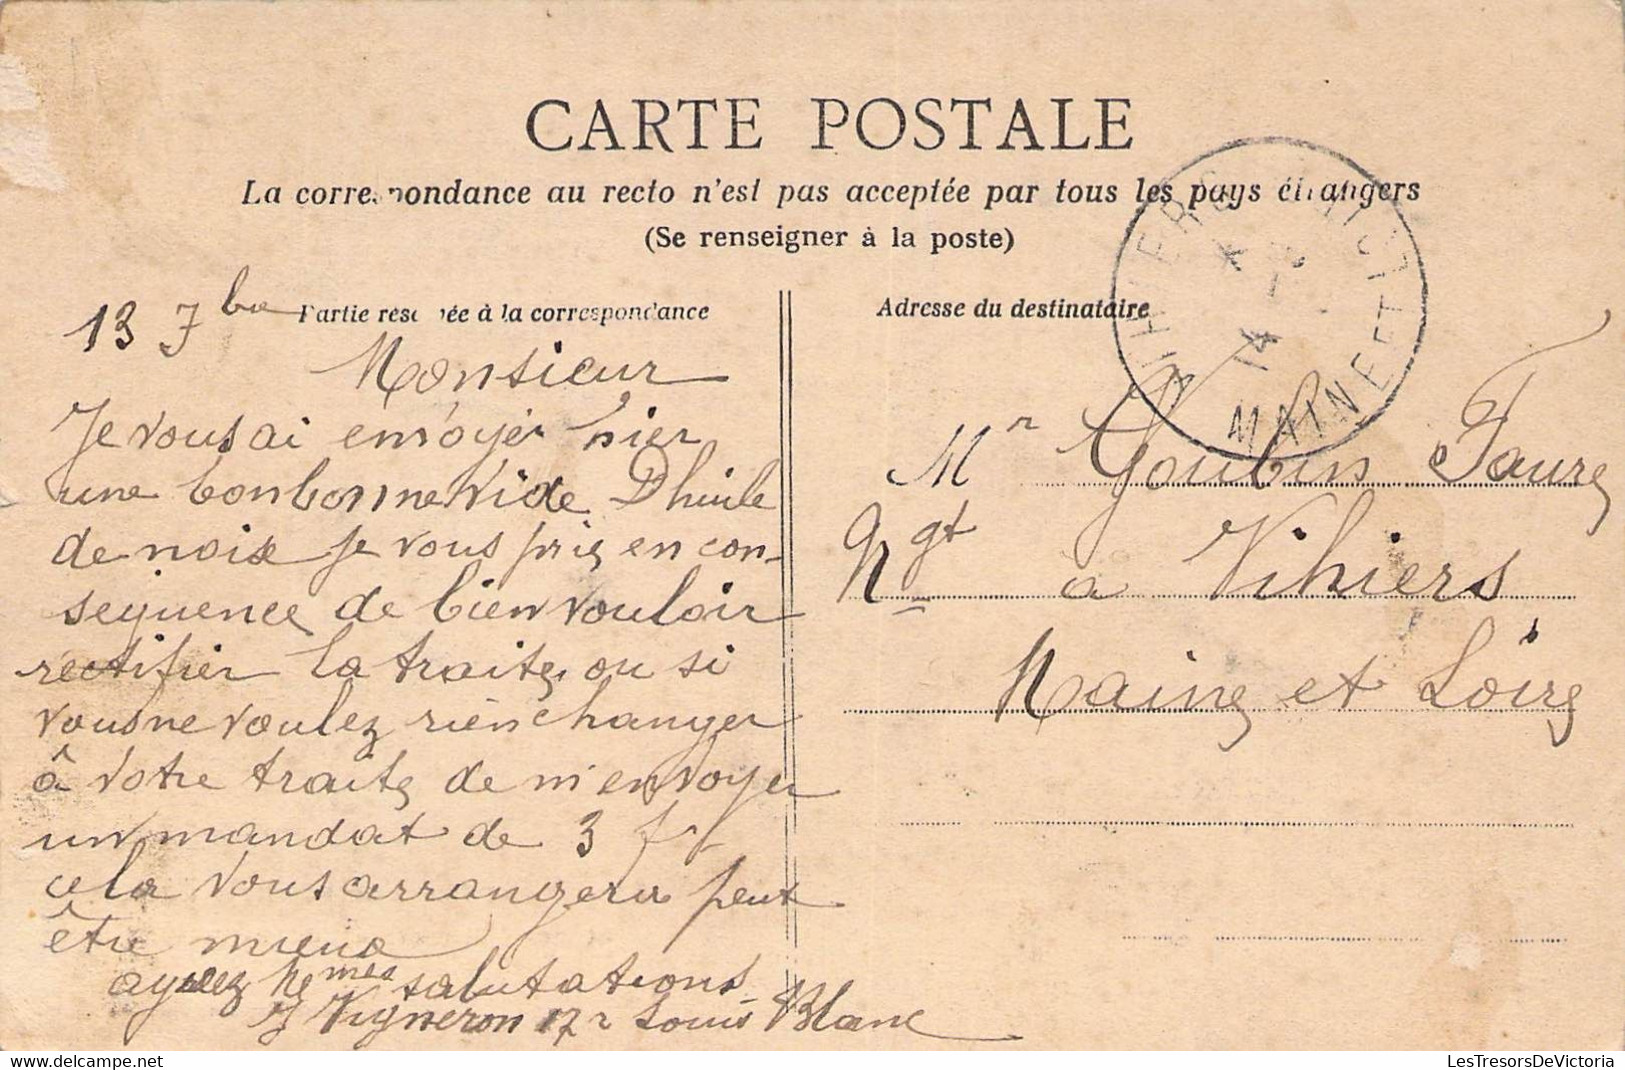 CARTE POSTALE
La correspondance au recto n'est pas acceptée par tous les pays étrangers
(Se renseigner à la poste)
Partie réservée à la correspondance
Adresse du destinataire
VIHIERS
14
MAINE ET L
13 7bre
Monsieur
Je vous ai envoyer hier
une bonbonne vide D'huile
de noix je vous prie en con-
sequence de bien vouloir
réctifier la traite, ou si
vous ne voulez rien changer
à votre traite de m'envoyer
un mandat de 3 f
cela vous arrangera peut
être mieux
agréez Hemmes salutations
J Vigneron 17 r Louis Blanc
Mr Goubin Faure
Ngt à Vihiers
Maine et Loire
LesTresorsDeVictoria